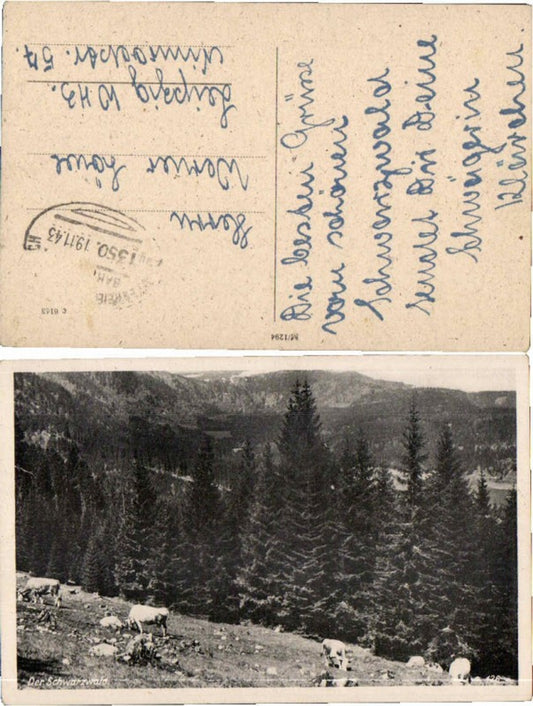 Die besten Grüsse
vom schönen
Schwarzwald
sendet Dir Deine
Schwägerin
Klärchen
Herrn
Werner
Leipzig W 43.
57.
1350 19.11.43
BAH
c 6163
M/1294
Der Schwarzwald